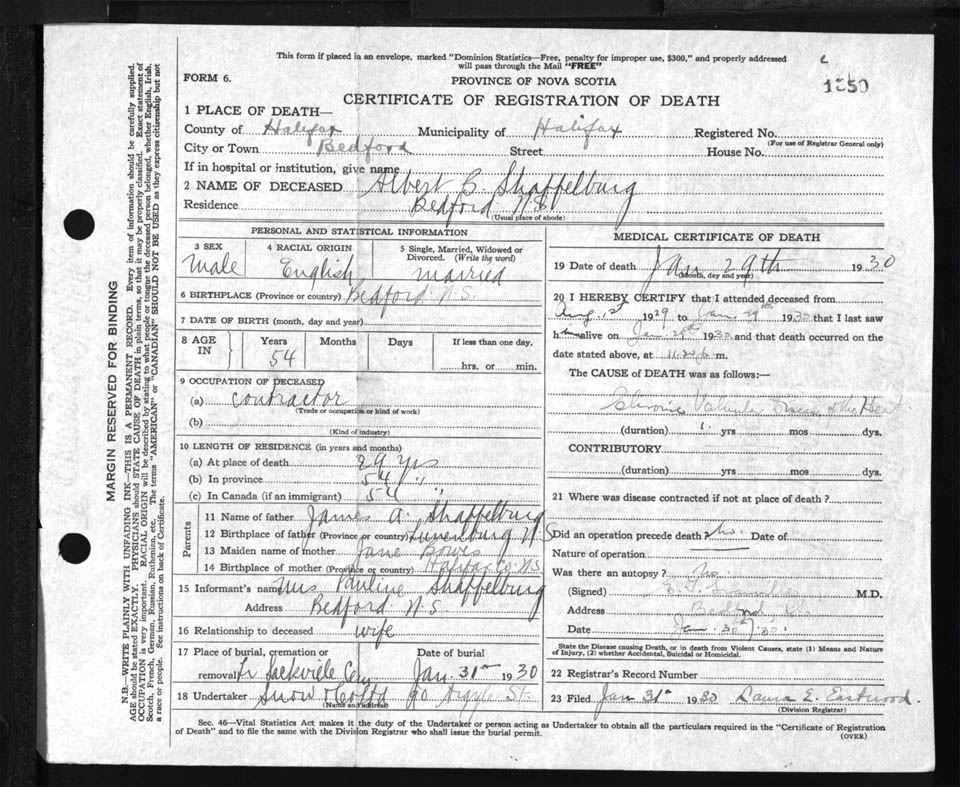 This form if placed in an envelope, marked "Dominion Statistics—Free, penalty for improper use, $300," and properly addressed
will pass through the Mail "FREE"
1350
FORM 6.
PROVINCE OF NOVA SCOTIA
CERTIFICATE OF REGISTRATION OF DEATH
1 PLACE OF DEATH—
County of Halifax Municipality of Halifax Registered No.
(For use of Registrar General only)
City or Town Bedford Street House No.
If in hospital or institution, give name
2 NAME OF DECEASED Albert B. Shaffelburg
Residence Bedford N.S.
(Usual place of abode)
PERSONAL AND STATISTICAL INFORMATION
3 SEX 4 RACIAL ORIGIN 5 Single, Married, Widowed or
Divorced. (Write the word)
Male English married
6 BIRTHPLACE (Province or country) Bedford N.S.
7 DATE OF BIRTH (month, day and year)
8 AGE IN Years Months Days If less than one day,
54 hrs. or min.
9 OCCUPATION OF DECEASED
(a) contractor
(Trade or occupation or kind of work)
(b)
(Kind of industry)
10 LENGTH OF RESIDENCE (in years and months)
(a) At place of death 29 yrs
(b) In province 54 "
(c) In Canada (if an immigrant) 54 "
Parents
11 Name of father James A. Shaffelburg
12 Birthplace of father (Province or country) Lunenburg N.S
13 Maiden name of mother Jane Bowes
14 Birthplace of mother (Province or country) Halifax Co. N.S.
15 Informant's name Mrs Pauline Shaffelburg
Address Bedford N.S
16 Relationship to deceased wife
17 Place of burial, cremation or Date of burial
removal Lr Sackville Cem Jan. 31st 1930
18 Undertaker Snow & Co Ltd 90 Argyle St.
(Name and address)
MEDICAL CERTIFICATE OF DEATH
19 Date of death Jan 29th 1930
(Month, day and year)
20 I HEREBY CERTIFY that I attended deceased from
Aug. 1st 1929 to Jan 29th 1930 that I last saw
him alive on Jan 29th 1930 and that death occurred on the
date stated above, at 11.30 p. m.
The CAUSE of DEATH was as follows:—
Chronic Valvular of the Heart
(duration) 1 yrs mos dys.
CONTRIBUTORY
(duration) yrs mos dys.
21 Where was disease contracted if not at place of death?
Did an operation precede death? No. Date of
Nature of operation
Was there an autopsy? No
(Signed) M.D.
Address Bedford, N.S.
Date Jan. 30th/30.
State the Disease causing Death, or in death from Violent Causes, state (1) Means and Nature
of Injury, (2) whether Accidental, Suicidal or Homicidal.
22 Registrar's Record Number
23 Filed Jan 31st 1930 Laura E. Eastwood.
(Division Registrar)
Sec. 46—Vital Statistics Act makes it the duty of the Undertaker or person acting as Undertaker to obtain all the particulars required in the "Certificate of Registration
of Death" and to file the same with the Division Registrar who shall issue the burial permit.
(OVER)
MARGIN RESERVED FOR BINDING
N.B.—WRITE PLAINLY WITH UNFADING INK—THIS IS A PERMANENT RECORD. Every item of information should be carefully supplied.
AGE should be stated EXACTLY. PHYSICIANS should STATE CAUSE OF DEATH in plain terms, so that it may be properly classified. Exact statement of
OCCUPATION is very important. RACIAL ORIGIN will be described by stating to what people or tongue the deceased person belonged, whether English, Irish,
Scotch, French, German, Russian, Ruthenian, etc. The terms "AMERICAN" or "CANADIAN" SHOULD NOT BE USED as they express citizenship but not
a race or people. See instructions on back of Certificate.